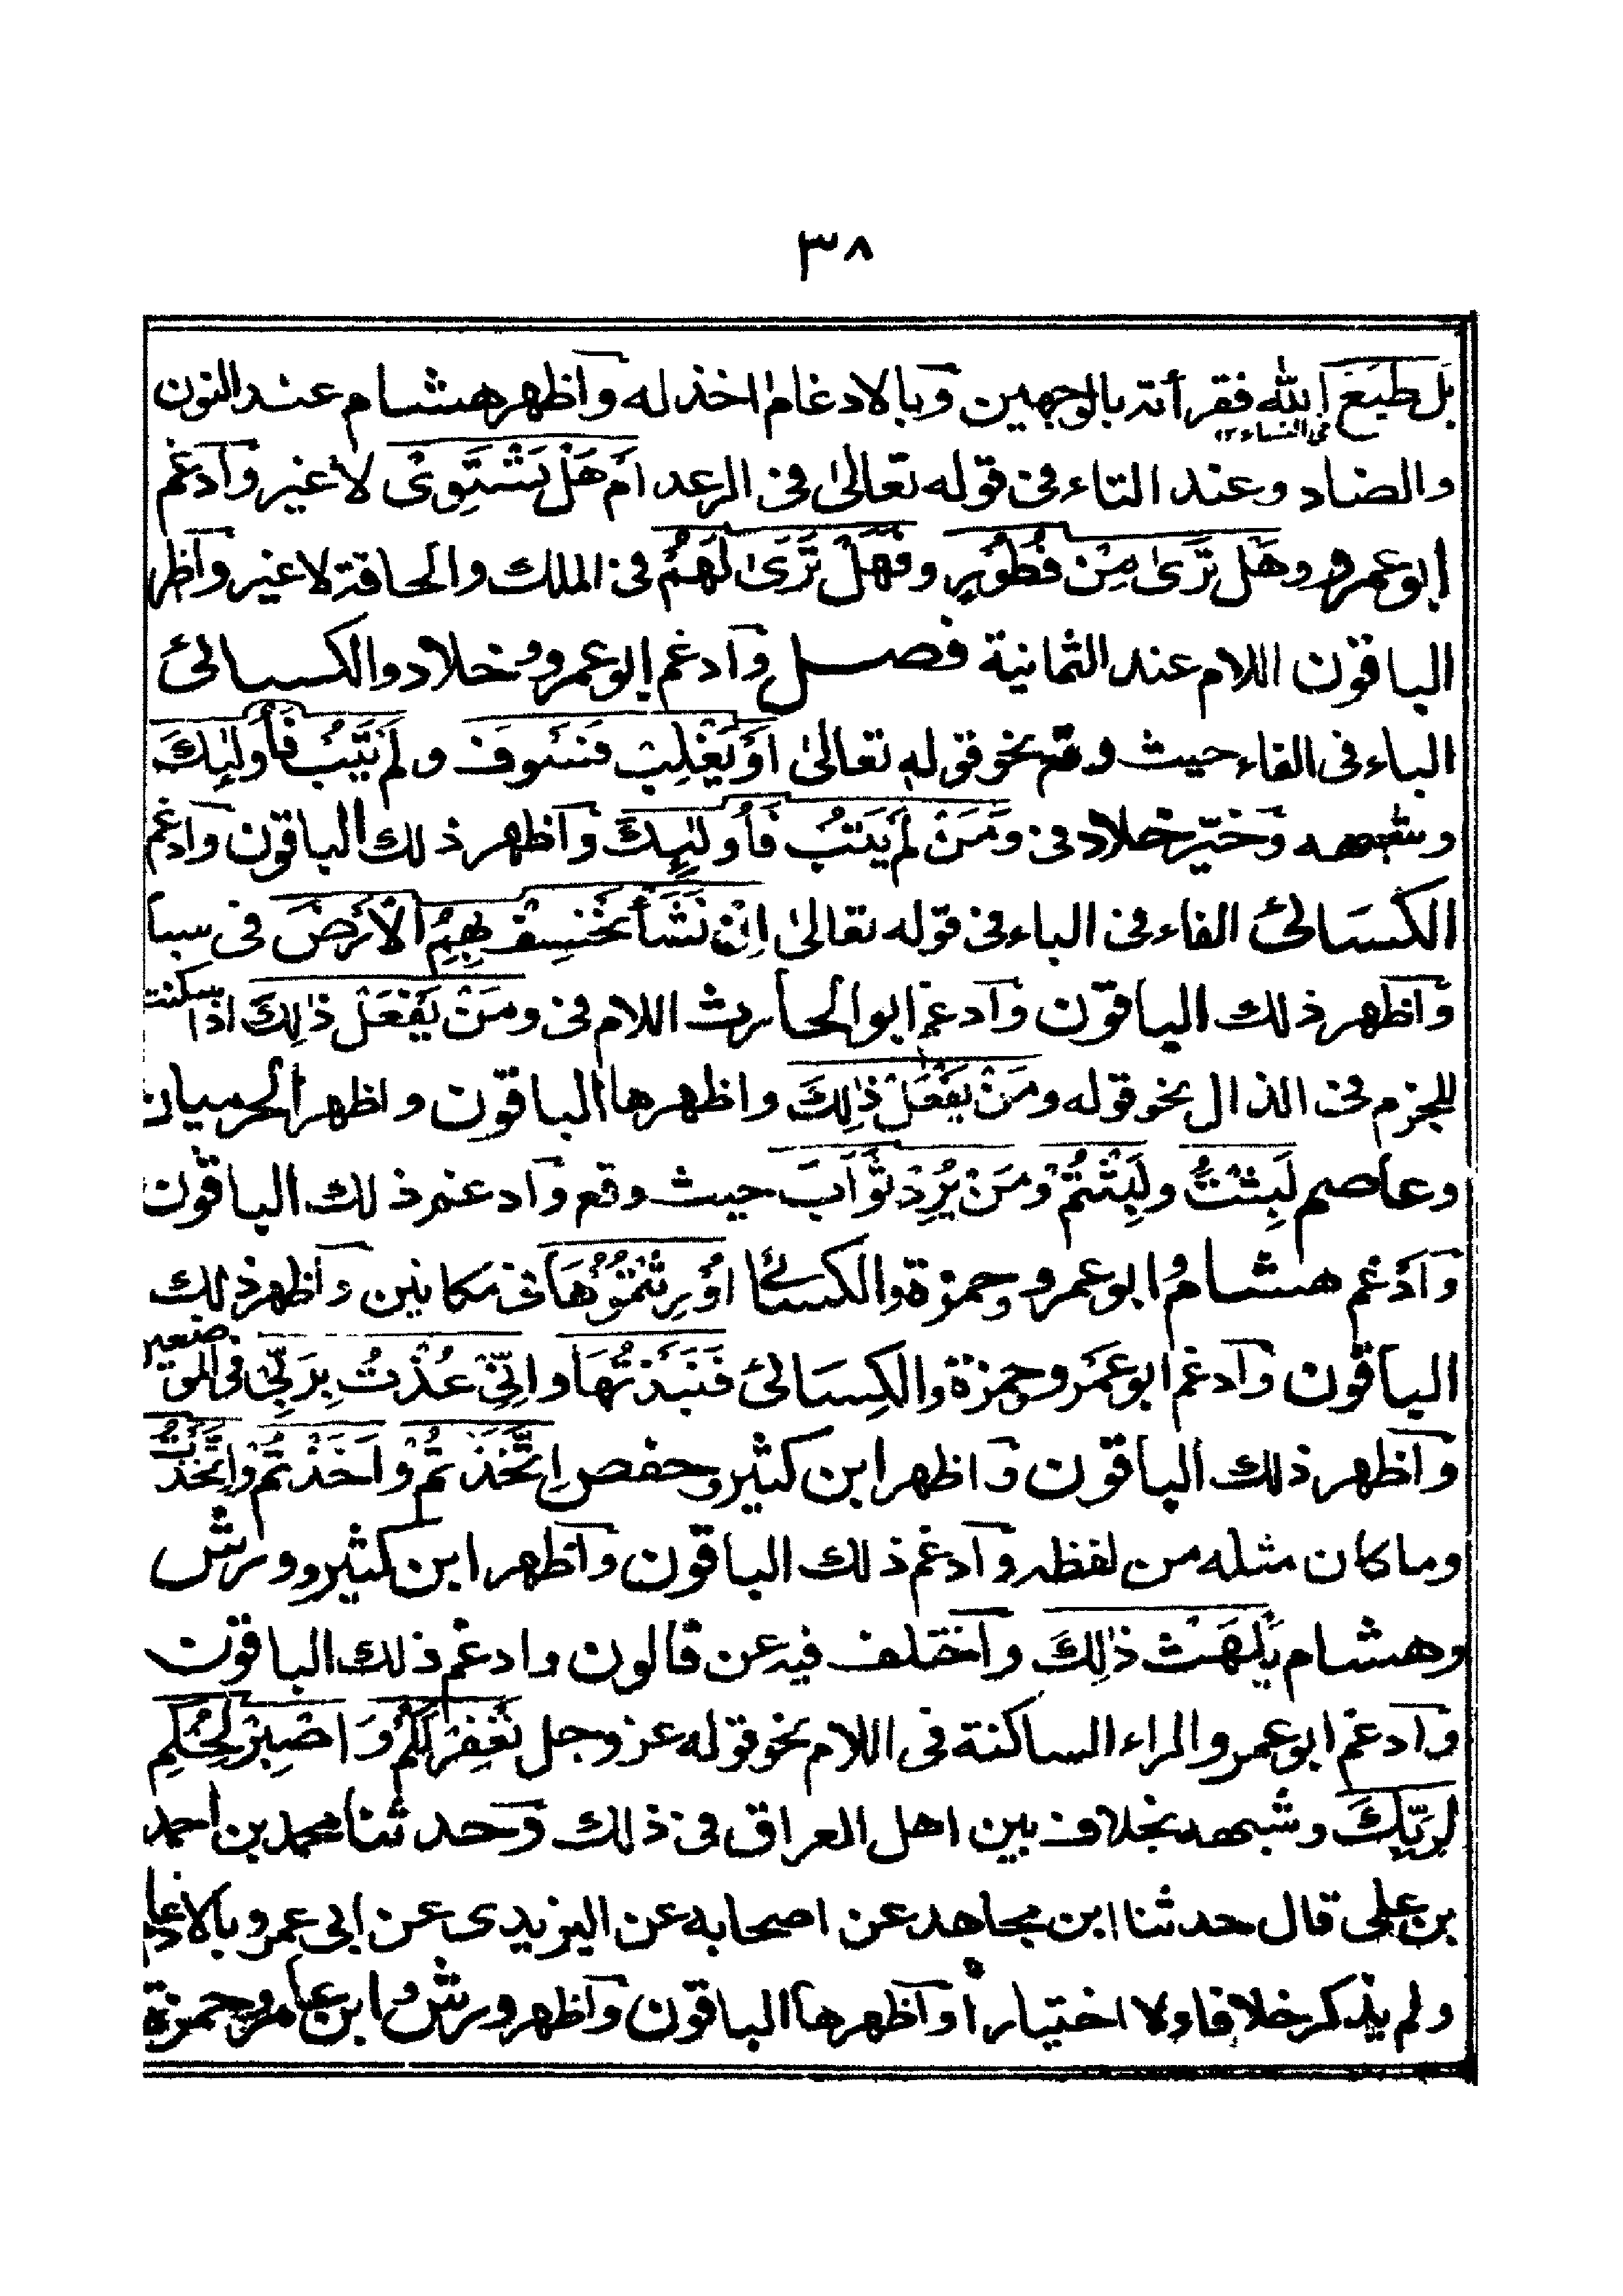 ٣٨
بَلْ طَبَعَ اللّٰه فقرأته بالوجهين وبالادغام اخذ له واظهر هشام عند النون
فى النساء ١٢
والضاد وعند التاء فى قوله تعالىٰ فى الرعد اَمْ هَلْ تَسْتَوِىْ لا غير وادغم
ابو عمرو وهَلْ تَرىٰ مِنْ فُطُوْرٍ وفَهَلْ تَرىٰ لَهُمْ فى الملك والحاقة لا غير واظهر
الباقون اللام عند الثمانية فصل وادغم ابو عمرو وخلاد والكسائى
الباء فى الفاء حيث وقع نحو قوله تعالىٰ اَوْ يَغْلِبْ فَسَوْفَ و لَمْ يَتُبْ فَأُولٰئِكَ
وشبهه وخيّر خلاد فى وَمَنْ لَمْ يَتُبْ فَأُولٰئِكَ واظهر ذلك الباقون وادغم
الكسائى الفاء فى الباء فى قوله تعالىٰ اِنْ نَشَأْ نَخْسِفْ بِهِمُ الْاَرْضَ فى سبا
واظهر ذلك الباقون وادغم ابو الحارث اللام فى ومَنْ يَفْعَلْ ذٰلِكَ اذا سكنت
للجزم فى الذال نحو قوله ومَنْ يَفْعَلْ ذٰلِكَ واظهرها الباقون واظهر الحرميان
وعاصم لَبِثْتُ ولَبِثْتُمْ ومَنْ يُرِدْ ثَوَابَ حيث وقع وادغم ذلك الباقون
وادغم هشام وابو عمرو وحمزة والكسائى اُوْرِثْتُمُوْهَا فى مكانين واظهر ذلك
الباقون وادغم ابو عمرو وحمزة والكسائى فَنَبَذْتُهَا و اِنِّىْ عُذْتُ بِرَبِّىْ فى الموضعين
واظهر ذلك الباقون واظهر ابن كثير وحفص اِتَّخَذْتُمْ واَخَذْتُمْ واِتَّخَذْتُ
وما كان مثله من لفظه وادغم ذلك الباقون واظهر ابن كثير وورش
وهشام يَلْهَثْ ذٰلِكَ واختلف فيه عن قالون وادغم ذلك الباقون
وادغم ابو عمرو الراء الساكنة فى اللام نحو قوله عز وجل نَغْفِرْ لَكُمْ وَ اصْبِرْ لِحُكْمِ
لِرَبِّكَ وشبهه بخلاف بين اهل العراق فى ذلك وحدثنا محمد بن احمد
بن على قال حدثنا ابن مجاهد عن اصحابه عن اليزيدى عن ابى عمرو بالادغام
ولم يذكر خلافا ولا اختيارا واظهرها الباقون واظهر ورش وابن عامر وحمزة